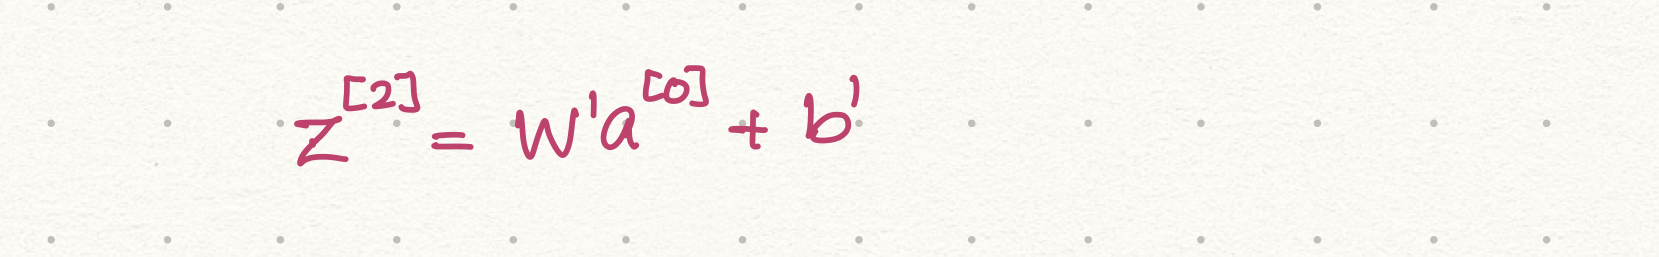 z^[2] = W'a^[0] + b'